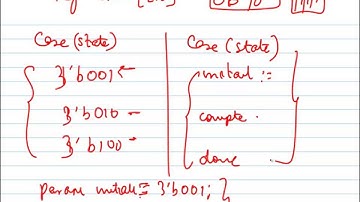 Case (state)
3'b001 ←
3'b010 -
3'b100 -
Case (state)
initial :=
compte .
done
param initial = 3'b001; }